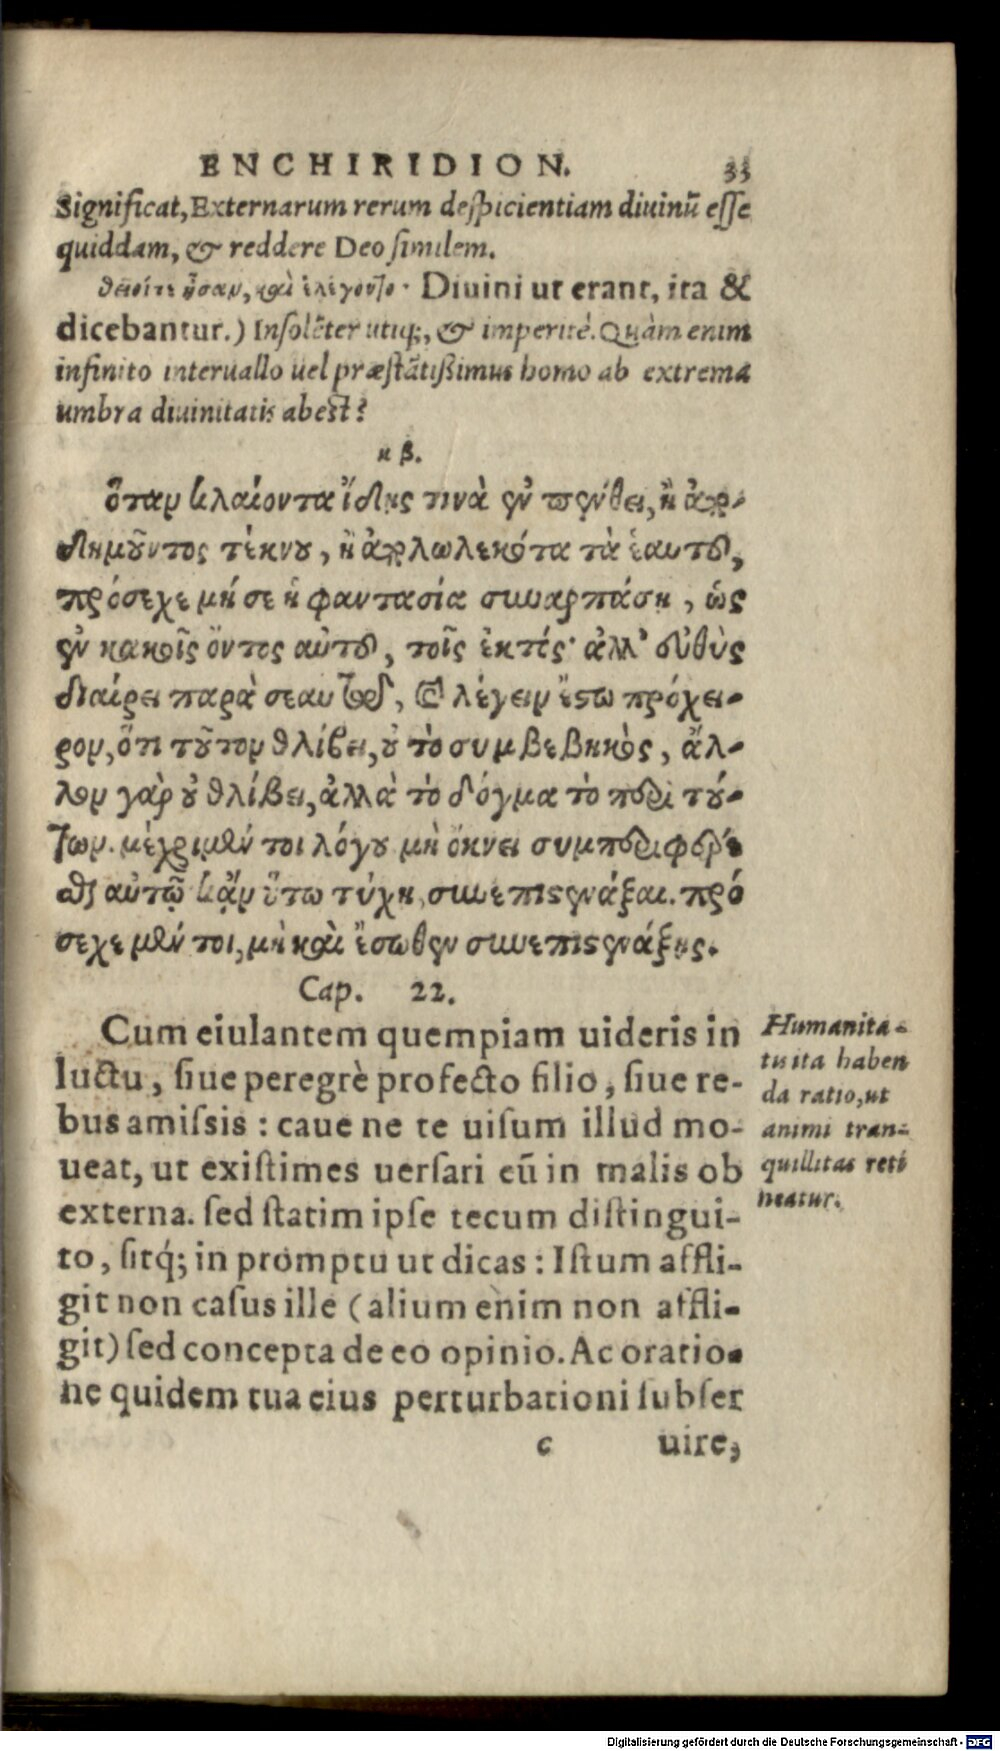 ENCHIRIDION. 33
Significat, Externarum rerum despicientiam diuinũ esse
quiddam, & reddere Deo similem.
θεῖοί τε ἦσαν, καὶ ἐλέγοντο. Diuini ut erant, ita &
dicebantur.) Insolẽter utiq;, & imperitè. Quàm enim
infinito interuallo uel præstãtißimus homo ab extrema
umbra diuinitatis abest?
κβ.
ὅταν κλαίοντα ἴδῃς τινὰ ἐν πένθει, ἢ ἀπο-
δημοῦντος τέκνου, ἢ ἀπολωλεκότα τὰ ἑαυτοῦ,
πρόσεχε μή σε ἡ φαντασία συναρπάσῃ, ὡς
ἐν κακοῖς ὄντος αὐτοῦ, τοῖς ἐκτός· ἀλλ' εὐθὺς
διαίρει παρὰ σεαυτῷ, καὶ λέγειν ἔστω πρόχει-
ρον, ὅτι τοῦτον θλίβει, οὐ τὸ συμβεβηκὸς, ἄλ-
λον γὰρ οὐ θλίβει, ἀλλὰ τὸ δόγμα τὸ περὶ τού-
των. μέχρι μέν τοι λόγου μὴ ὄκνει συμπεριφέρε
σθαι αὐτῷ κἂν οὕτω τύχῃ, συνεπιστενάξαι. πρό
σεχε μέν τοι, μὴ καὶ ἔσωθεν συνεπιστενάξῃς.
Cap. 22.
Cum eiulantem quempiam uideris in
luctu, siue peregrè profecto filio, siue re-
bus amissis: caue ne te uisum illud mo-
ueat, ut existimes uersari eũ in malis ob
externa. sed statim ipse tecum distingui-
to, sitq́; in promptu ut dicas: Istum affli-
git non casus ille (alium enim non affli-
git) sed concepta de eo opinio. Ac oratio-
ne quidem tua eius perturbationi subser
c uire,
Humanita-
tis ita haben
da ratio, ut
animi tran-
quillitas reti
neatur.
Digitalisierung gefördert durch die Deutsche Forschungsgemeinschaft - DFG